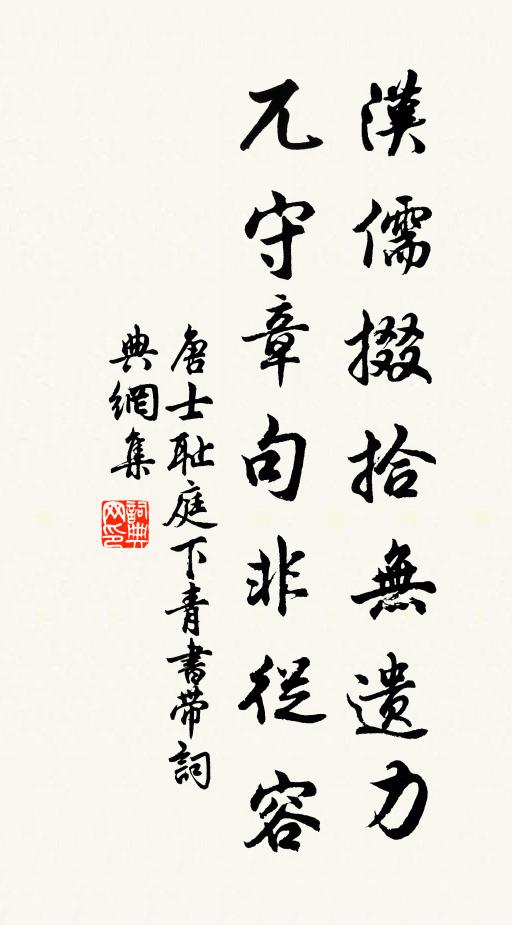 漢儒掇拾無遺力
兀守章句非從容
唐士耻庭下青書帶詞
典網集
詞典
网印